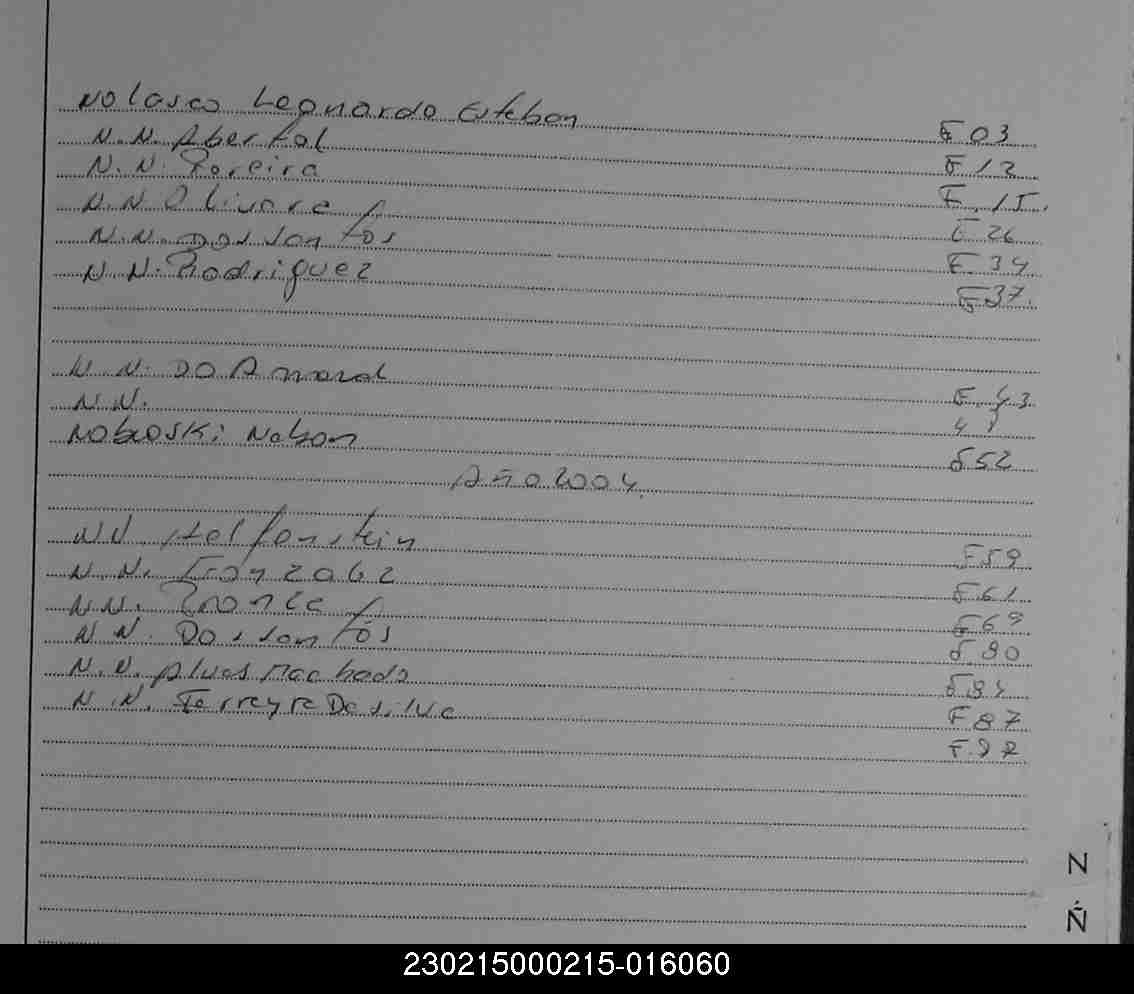 Nolasco Leonardo Esteban F 03
N.N. Abertol F 12
N.N. Pereira F 15.
N.N Olivore F 26
N.N. Dos Santos F 34
N N. Rodriguez F 37.
N. N. DO Amaral F. 43
N N. 47
Nobloski Nelson F 52
Año 2004.
NN Helfenstein F 59
N. N. Gonzalez F 61
N.N. F 69
N N. Dos Santos F 80
N.N. Alves Machado F 84
N.N. Ferreyra Da Silva F 87
F. 92
N
Ñ
230215000215-016060